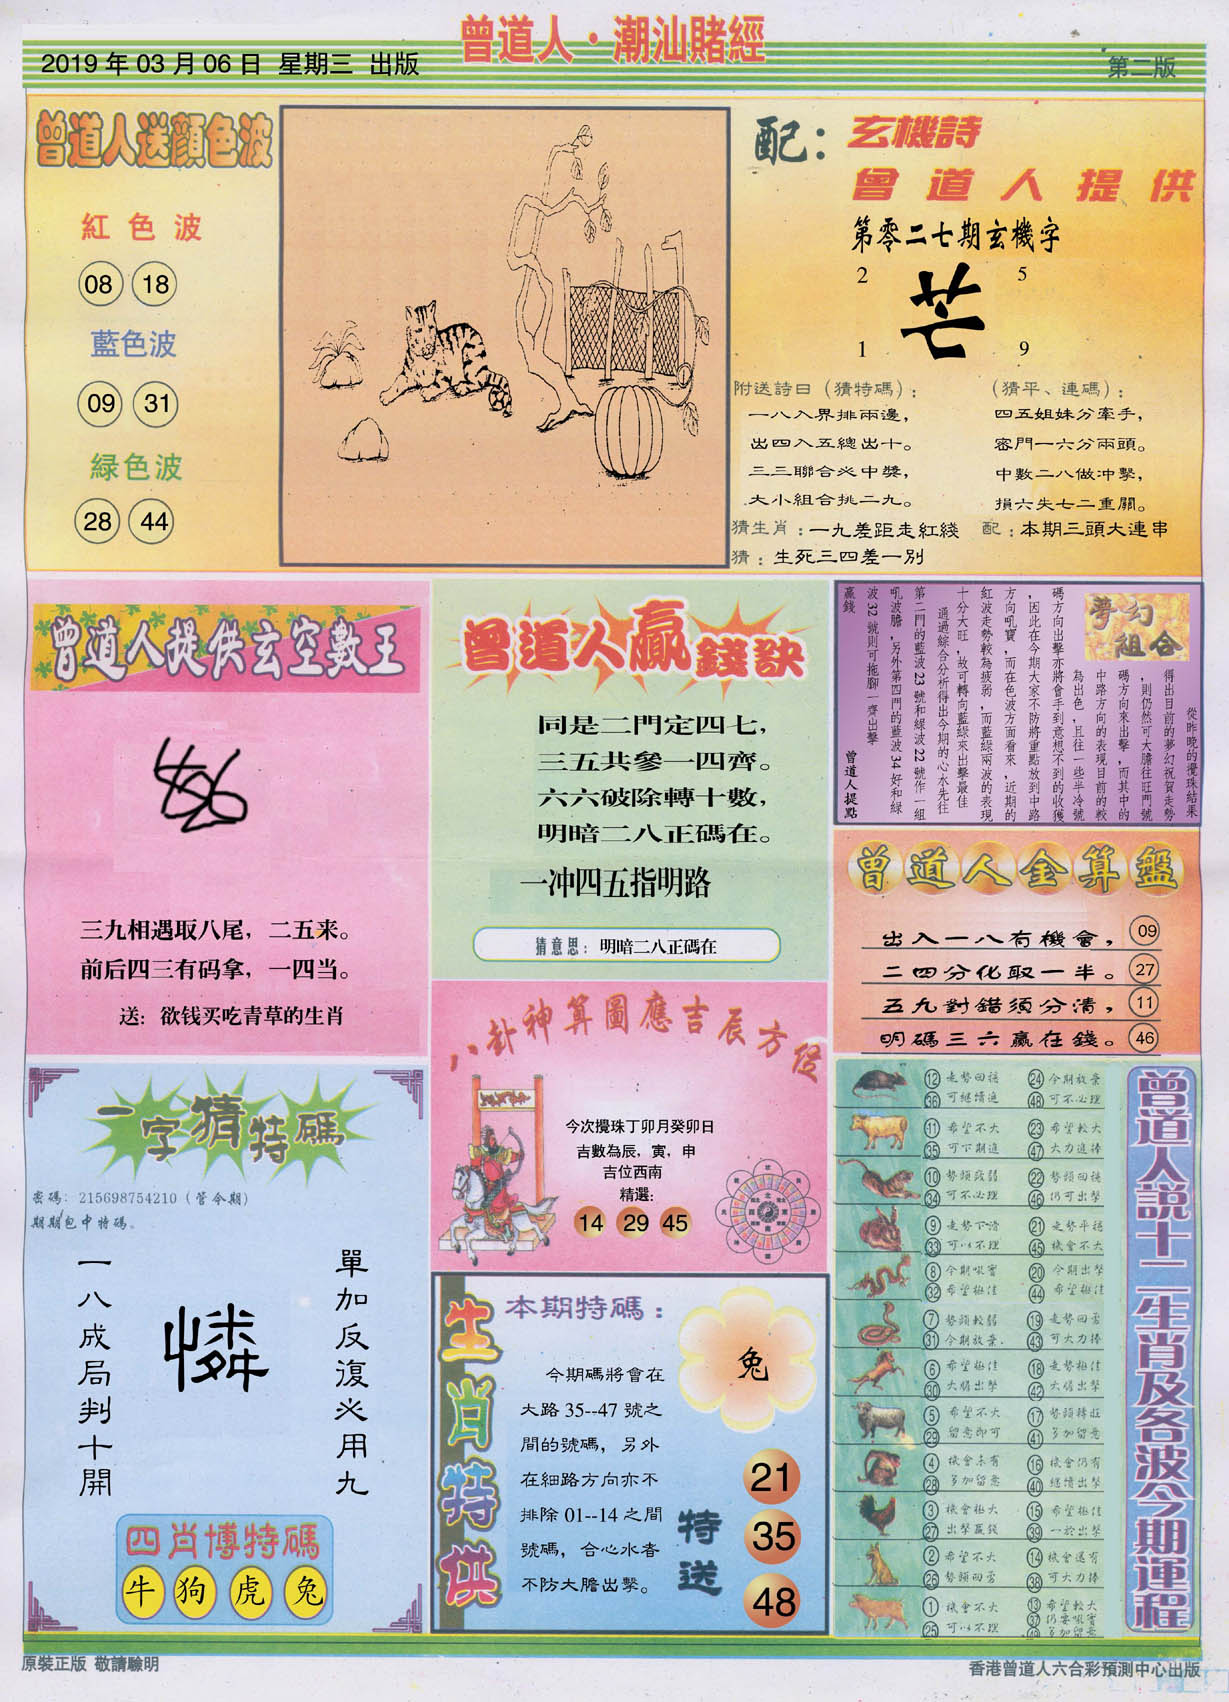 曾道人·潮汕賭經
2019 年 03 月 06 日 星期三 出版
第二版
曾道人送顏色波
紅色波
08 18
藍色波
09 31
緑色波
28 44
配：
玄機詩
曾道人提供
第零二七期玄機字
2 5
芒
1 9
附送詩曰（猜特碼）：
一八入界排兩邊，
出四入五總出十。
三三聯合必中獎，
大小組合挑二九。
（猜平、連碼）：
四五姐妹分牽手，
密門一六分兩頭。
中數二八做冲擊，
損六失七二重關。
猜生肖：一九差距走紅綫
配：本期三頭大連串
猜：生死三四差一別
曾道人提供玄空數王
三九相遇取八尾，二五来。
前后四三有码拿，一四当。
送：欲钱买吃青草的生肖
曾道人贏錢訣
同是二門定四七，
三五共參一四齊。
六六破除轉十數，
明暗二八正碼在。
一冲四五指明路
猜意思：明暗二八正碼在
夢幻
組合
從昨晚的攪珠結果
得出目前的夢幻祝賀走勢
，則仍然可大膽往旺門號
碼方向來出擊，而其中的
中路方向的表現目前的較
為出色，且往一些半冷號
碼方向出擊亦將會手到意想不到的收獲
，因此在今期大家不防將重點放到中路
方向吼寶，而在色波方面看來，近期的
紅波走勢較為疲弱，而藍綠兩波的表現
十分大旺，故可轉向藍綠來出擊最佳
通過綜合分析得出今期的心水先往
第二門的藍波 23 號和綠波 22 號作一組
吼波膽，另外第四門的藍波 34 好和綠
波 32 號則可拖腳一齊出擊
贏錢
曾道人提點
曾道人金算盤
出入一八有機會， 09
二四分化取一半。 27
五九對錯須分清， 11
明碼三六贏在錢。 46
八卦神算圖應吉辰方位
今次攪珠丁卯月癸卯日
吉數為辰，寅，申
吉位西南
精選：
14 29 45
一字猜特碼
密碼：215698754210（管今期）
期期包中特碼。
單加反復必用九
憐
一八成局判十開
四肖博特碼
牛 狗 虎 兔
生肖特供
本期特碼：
兔
今期碼將會在
大路 35--47 號之
間的號碼，另外
在細路方向亦不
排除 01--14 之間
號碼，合心水者
不防大膽出擊。
特送
21
35
48
曾道人說十二生肖及各波今期運程
12 走勢回穩
36 可繼續追
24 今期放棄
48 可不必理
11 希望不大
35 可下期追
23 希望較大
47 大力追捧
10 勢頭疲弱
34 可不必理
22 勢頭回穩
46 仍可出擊
9 走勢下滑
33 可以不理
21 走勢平穩
45 機會不大
8 今期吼寶
32 希望極佳
20 今期出擊
44 希望極佳
7 勢頭較弱
31 今期放棄
19 走勢回勇
43 可大力捧
6 希望極佳
30 大膽出擊
18 走勢極佳
42 大膽出擊
5 希望不大
29 留意即可
17 勢頭轉旺
41 多加留意
4 機會未有
28 多加留意
16 機會仍有
40 繼續出擊
3 機會極大
27 出擊贏錢
15 希望極佳
39 一於出擊
2 希望不大
26 勢頭回勇
14 機會還有
38 可大力捧
1 機會不大
25 可以不理
13 希望較大
37 仍要吼實
49 多加留意
原裝正版 敬請驗明
香港曾道人六合彩預測中心出版